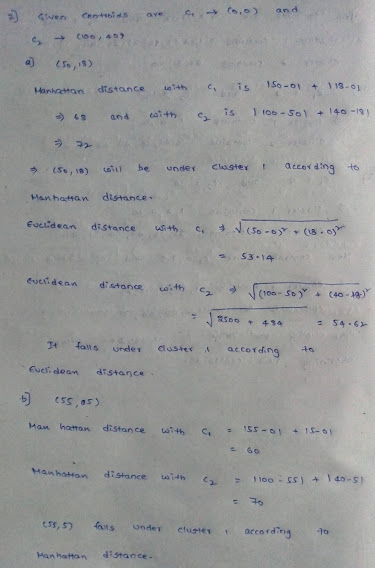 2] Given centroids are c₁ → (0,0) and
c₂ → (100,40)
a] (50,18)
Manhattan distance with c₁ is |50-0| + |18-0|
⇒ 68 and with c₂ is |100-50| + |40-18|
⇒ 72
⇒ (50,18) will be under cluster 1 according to
Manhattan distance.
Euclidean distance with c₁ ⇒ √(50-0)² + (18-0)²
= 53.14
Euclidean distance with c₂ ⇒ √(100-50)² + (40-18)²
= √2500 + 484 = 54.62
It falls under cluster 1 according to
Euclidean distance.
b] (55,05)
Man hattan distance with c₁ = |55-0| + |5-0|
= 60
Manhattan distance with c₂ = |100-55| + |40-5|
= 70
(55,5) falls under cluster 1 according to
Manhattan distance.